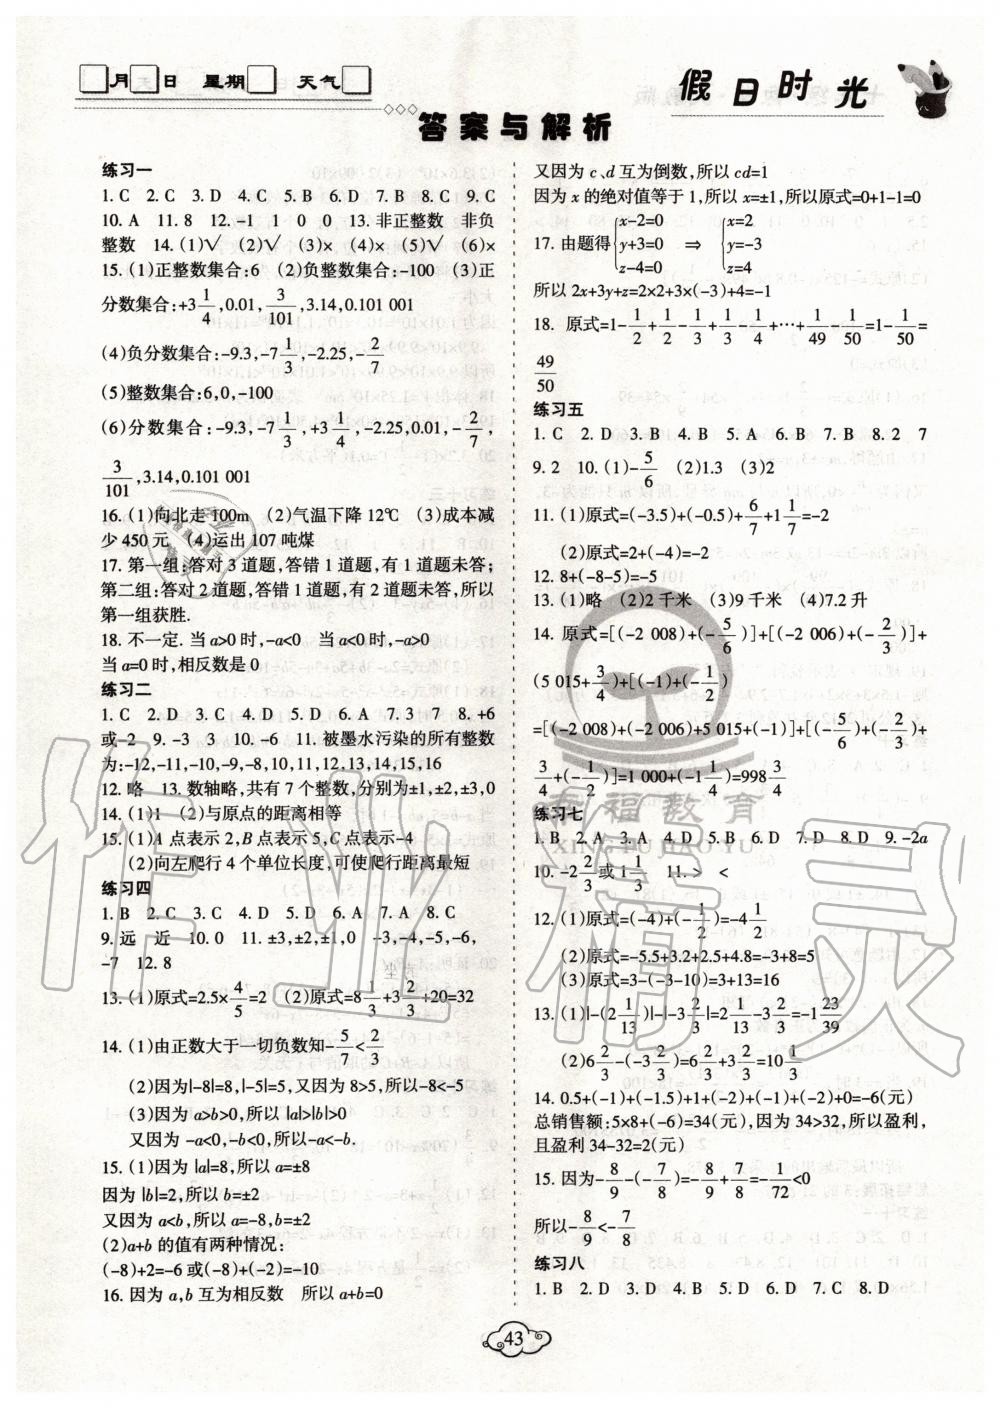 月 日 星期 天气
假日时光
答案与解析
练习一
1. C 2. C 3. D 4. C 5. B 6. D 7. B 8. C 9. C
10. A 11. 8 12. -1 1 0 0 13. 非正整数 非负
整数 14. (1)√ (2)√ (3)× (4)× (5)√ (6)×
15. (1)正整数集合:6 (2)负整数集合:-100 (3)正
分数集合:+3 1/4,0.01,3/101,3.14,0.101 001
(4)负分数集合:-9.3,-7 1/3,-2.25,-2/7
(5)整数集合:6,0,-100
(6)分数集合:-9.3,-7 1/3,+3 1/4,-2.25,0.01,-2/7,
3/101,3.14,0.101 001
16. (1)向北走 100m (2)气温下降 12℃ (3)成本减
少 450 元 (4)运出 107 吨煤
17. 第一组:答对 3 道题,答错 1 道题,有 1 道题未答;
第二组:答对 2 道题,答错 1 道题,有 2 道题未答,所以
第一组获胜.
18. 不一定. 当 a>0 时,-a<0 当 a<0 时,-a>0
当 a=0 时,相反数是 0
练习二
1. C 2. D 3. C 4. D 5. D 6. A 7. 3 7 8. +6
或-2 9. -3 3 10. -6 11. 被墨水污染的所有整数
为:-12,-11,-10,-9,-8,10,11,12,13,14,15,16
12. 略 13. 数轴略,共有 7 个整数,分别为±1,±2,±3,0
14. (1)1 (2)与原点的距离相等
15. (1)A 点表示 2,B 点表示 5,C 点表示-4
(2)向左爬行 4 个单位长度,可使爬行距离最短
练习四
1. B 2. C 3. C 4. D 5. D 6. A 7. A 8. C
9. 远 近 10. 0 11. ±3,±2,±1,0 -3,-4,-5,-6,
-7 12. 8
13. (1)原式=2.5×4/5=2 (2)原式=8 1/3+3 2/3+20=32
14. (1)由正数大于一切负数知-5/7<2/3
(2)因为|-8|=8,|-5|=5,又因为 8>5,所以-8<-5
(3)因为 a>b>0,所以|a|>|b|>0
又因为-a<0,-b<0,所以-a<-b.
15. (1)因为 |a|=8,所以 a=±8
因为|b|=2,所以 b=±2
又因为 a<b,所以 a=-8,b=±2
(2)a+b 的值有两种情况:
(-8)+2=-6 或(-8)+(-2)=-10
16. 因为 a,b 互为相反数 所以 a+b=0
又因为 c、d 互为倒数,所以 cd=1
因为 x 的绝对值等于 1,所以 x=±1,所以原式=0+1-1=0
17. 由题得{x-2=0 y+3=0 z-4=0 ⇒ {x=2 y=-3 z=4
所以 2x+3y+z=2×2+3×(-3)+4=-1
18. 原式=1-1/2+1/2-1/3+1/3-1/4+…+1/49-1/50=1-1/50=
49/50
练习五
1. C 2. D 3. B 4. B 5. A 6. B 7. B 8. 2 7
9. 2 10. (1)-5/6 (2)1.3 (3)2
11. (1)原式=(-3.5)+(-0.5)+6/7+1 1/7=-2
(2)原式=2+(-4)=-2
12. 8+(-8-5)=-5
13. (1)略 (2)2 千米 (3)9 千米 (4)7.2 升
14. 原式=[(-2 008)+(-5/6)]+[(-2 006)+(-2/3)]+
(5 015+3/4)+[(-1)+(-1/2)]
=[(-2 008)+(-2 006)+5 015+(-1)]+[(-5/6)+(-2/3)+
3/4+(-1/2)]=1 000+(-1 1/4)=998 3/4
幸福教育
XING FU JIAO YU
练习七
1. B 2. A 3. A 4. D 5. B 6. D 7. D 8. D 9. -2a
10. -2 2/3或1 1/3 11. > <
12. (1)原式=(-4)+(-1/2)=-4 1/2
(2)原式=-5.5+3.2+2.5+4.8=-3+8=5
(3)原式=3-(-3-10)=3+13=16
13. (1)|-(2 1/13)|-|-3 2/3|=2 1/13-3 2/3=-1 23/39
(2)6 2/3-(-3 2/3)=6 2/3+3 2/3=10 1/3
14. 0.5+(-1)+(-1.5)+1+(-2)+(-1)+(-2)+0=-6(元)
总销售额:5×8+(-6)=34(元),因为 34>32,所以盈利,
且盈利 34-32=2(元)
15. 因为-8/9-(-7/8)=-8/9+7/8=-1/72<0
所以-8/9<-7/8
练习八
1. B 2. D 3. D 4. C 5. D 6. D 7. C 8. D
43
作业精灵